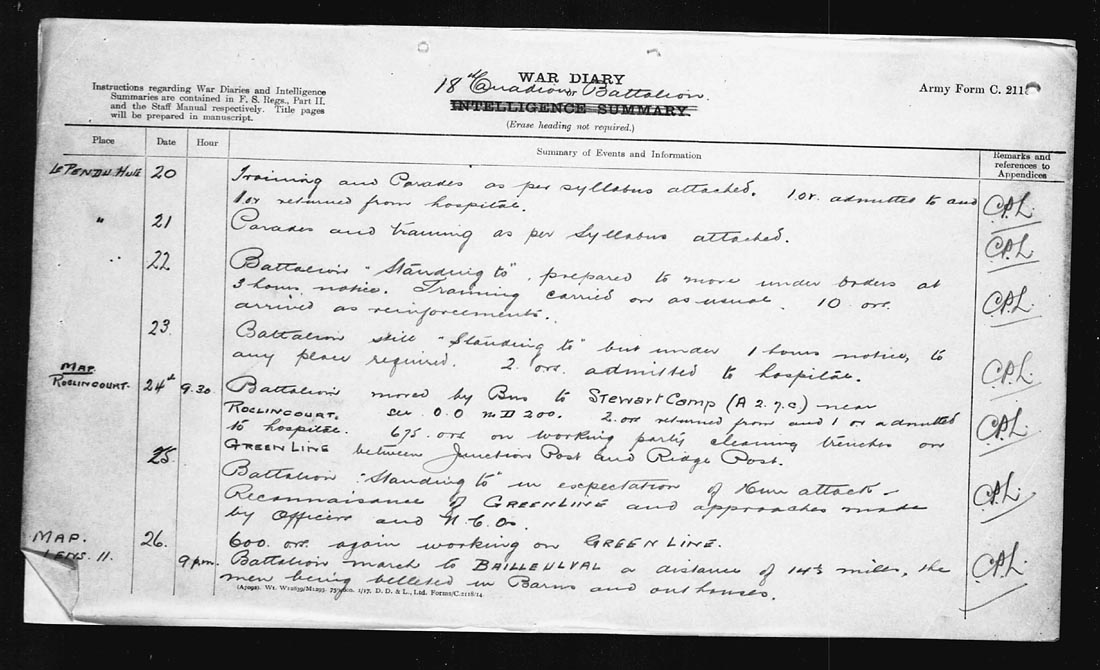 Instructions regarding War Diaries and Intelligence
Summaries are contained in F. S. Regs., Part II.
and the Staff Manual respectively. Title pages
will be prepared in manuscript.
WAR DIARY
18th Canadian Battalion.
or
INTELLIGENCE SUMMARY.
(Erase heading not required.)
Army Form C. 2118
Place Date Hour Summary of Events and Information Remarks and references to Appendices
Le Pendu Huts 20 Training and Parades as per syllabus attached. 1 or. admitted to and C.P.L.
1 or returned from hospital.
" 21 Parades and training as per Syllabus attached. C.P.L.
" 22 Battalion "Standing to", prepared to move under orders at C.P.L.
3 hours notice. Training carried on as usual. 10 ors.
arrived as reinforcements.
23 Battalion still "Standing to" but under 1 hours notice, to C.P.L.
any place required. 2 ors. admitted to hospital.
MAP.
ROCLINCOURT. 24th 9.30 Battalion moved by Bus to Stewart Camp (A 2.7.c) near
ROCLINCOURT. see O.O no 200. 2 or returned from and 1 or admitted C.P.L.
to hospital. 675 ors on working party cleaning trenches on
GREEN LINE between Junction Post and Ridge Post.
25 Battalion "Standing to" in expectation of Hun attack - C.P.L.
Reconnaisance of GREEN LINE and approaches made
by Officers and N.C.Os.
MAP. 26. 600 ors. again working on GREEN LINE.
LENS. 11. 9 pm. Battalion march to BAILLEULVAL a distance of 14½ miles, the C.P.L.
men being billeted in Barns and outhouses.
D. D. & L., Ltd. Forms/C.2118/14.